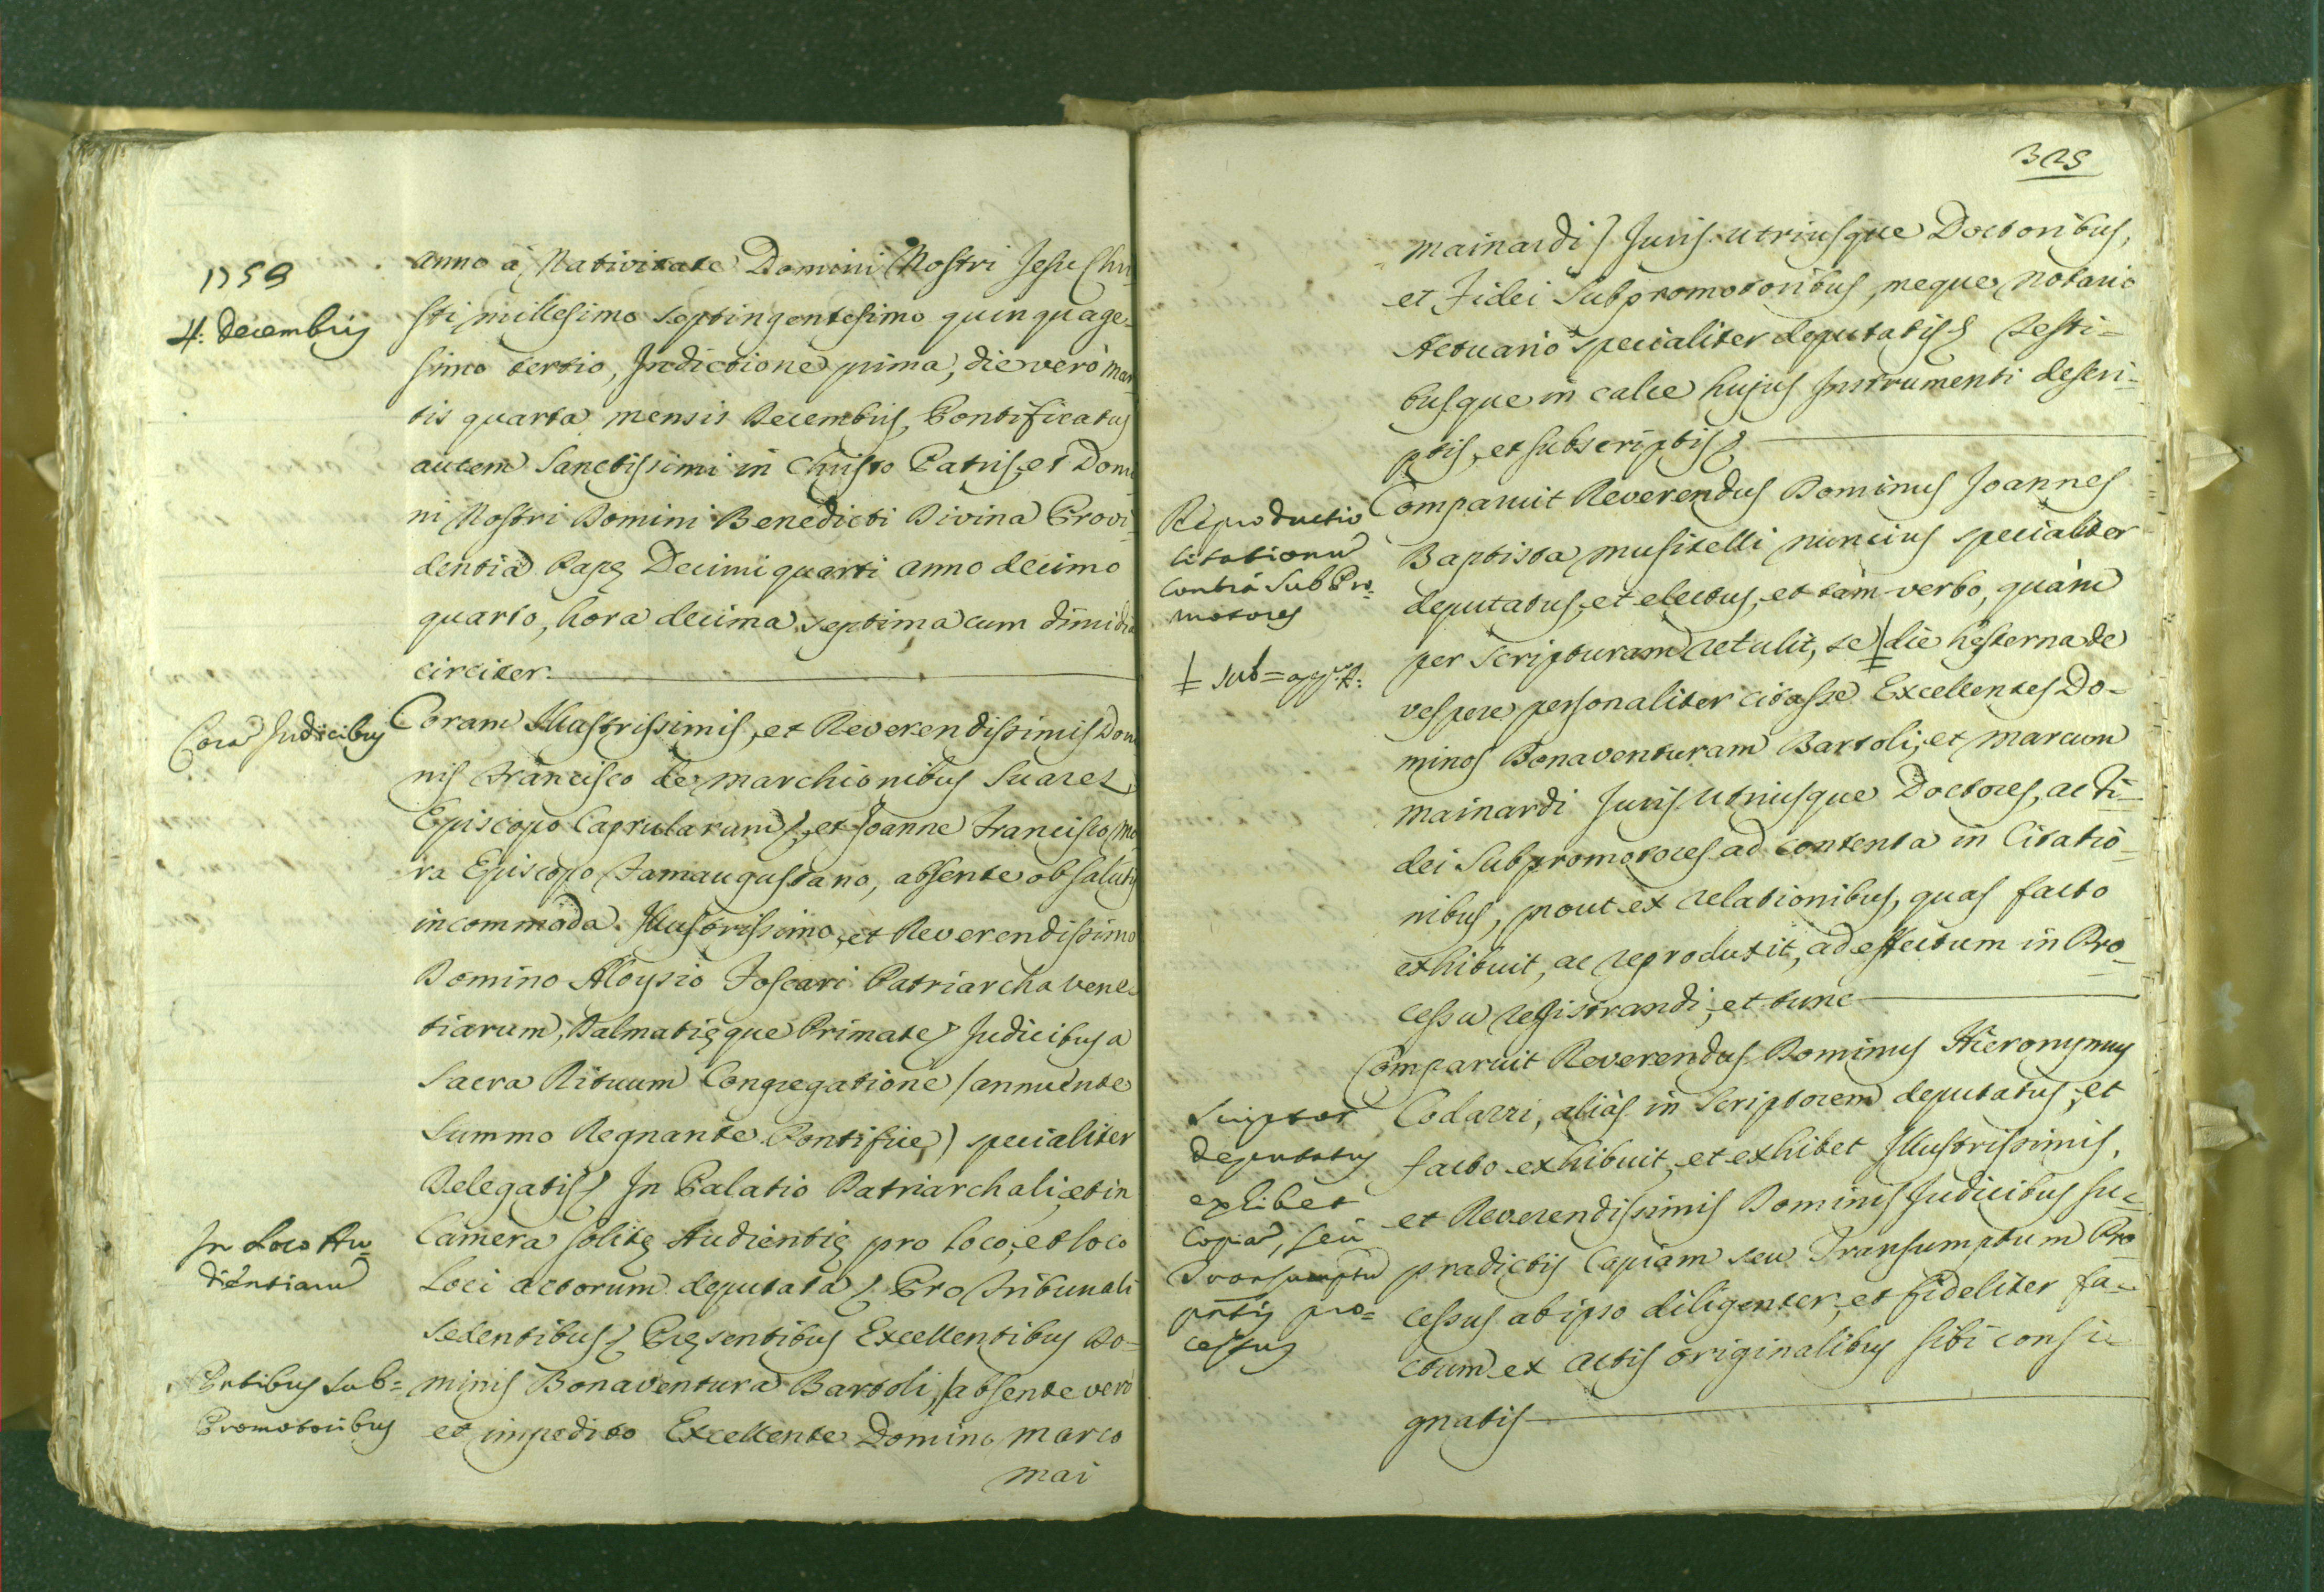 1753
4. Decembris
Anno à Nativitate Domini Nostri Jesu Chri-
sti millesimo septingentesimo quinquage-
simo tertio, Indictione prima, die verò Mar
tis quarta mensis Decembris, Pontificatus
autem Sanctissimi in Christo Patris, et Domi
ni Nostri Domini Benedicti Divina Provi-
dentia Papę Decimi quarti anno decimo
quarto, hora decima septima cum dimidia
circiter.
Corã Judicibus
Coram Illustrissimis, et Reverendissimis Domi
nis Francisco de Marchionibus Suarez
Episcopo Caprularum, et Joanne Francisco Mo
ra Episcopo Famaugustano, absente ob salutis
incommoda Illustrissimo, et Reverendissimo
Domino Aloysio Foscari Patriarcha Vene-
tiarum, Dalmatięque Primate, Judicibus a
Sacra Rituum Congregatione (annuente
Summo Regnante Pontifice) specialiter
Delegatis, In Palatio Patriarchali, et in
In Loco Au-
dientiarũ
Camera solitę Audientię pro loco, et loco
Loci actorum deputata, Pro Tribunali
sedentibus, Pręsentibus Excellentibus Do-
Pntibus Sub=
Promotoribus
minis Bonaventura Bartoli, (absente verò
et impedito Excellente Domino Marco
Mai
325
Mainardi) Juris utriusque Doctoribus,
et Fidei Subpromotoribus, meque Notario
Actuario specialiter deputatis, Testi-
busque in calce hujus Instrumenti descri-
ptis, et subscriptis,
Reproductio
Citationũ
contrà SubPro-
motores
Comparuit Reverendus Dominus Joannes
Baptista Musitelli nuncius specialiter
deputatus, et electus, et tàm verbo, quàm
per scripturam retulit, se ǂ die hesterna de
ǂ sub=
vespere personaliter citasse Excellentes Do-
minos Bonaventuram Bartoli, et Marcum
Mainardi Juris Utriusque Doctores, ac Fi-
dei Subpromotores ad contenta in Citatio-
nibus, prout ex relationibus, quas facto
exhibuit, ac reproduxit, ad effectum in Pro-
cessu registrandi, et tunc
Comparuit Reverendus Dominus Hieronymus
Scriptor
deputatus
exhibet
Copiã, seu
Transumptũ
pntis pro=
cessus
Codazzi, aliàs in Scriptorem deputatus, et
facto exhibuit, et exhibet Illustrissimis,
et Reverendissimis Dominis Judicibus su-
pradictis Copiam seu Transumptum Pro
cessus ab ipso diligenter, et fideliter fa-
ctum ex actis originalibus sibi consi-
gnatis